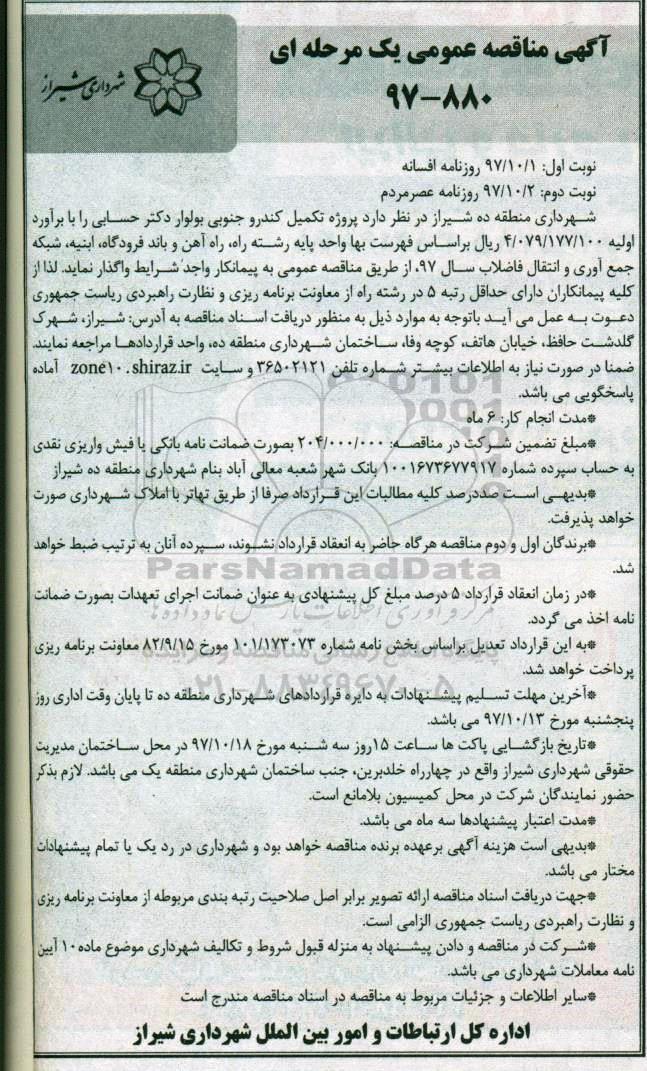 آگهی مناقصه عمومی یک مرحله ای
۹۷-۸۸۰
شهرداری شیراز
نوبت اول: ۹۷/۱۰/۱ روزنامه افسانه
نوبت دوم: ۹۷/۱۰/۲ روزنامه عصرمردم
شهرداری منطقه ده شیراز در نظر دارد پروژه تکمیل کندرو جنوبی بولوار دکتر حسابی را با برآورد
اولیه ۴/۰۷۹/۱۷۷/۱۰۰ ریال براساس فهرست بها واحد پایه رشته راه، راه آهن و باند فرودگاه، ابنیه، شبکه
جمع آوری و انتقال فاضلاب سال ۹۷، از طریق مناقصه عمومی به پیمانکار واجد شرایط واگذار نماید. لذا از
کلیه پیمانکاران دارای حداقل رتبه ۵ در رشته راه از معاونت برنامه ریزی و نظارت راهبردی ریاست جمهوری
دعوت به عمل می آید باتوجه به موارد ذیل به منظور دریافت اسناد مناقصه به آدرس: شیراز، شهرک
گلدشت حافظ، خیابان هاتف، کوچه وفا، ساختمان شهرداری منطقه ده، واحد قراردادها مراجعه نمایند.
ضمنا در صورت نیاز به اطلاعات بیشتر شماره تلفن ۳۶۵۰۲۱۲۱ و سایت zone۱۰.shiraz.ir آماده
پاسخگویی می باشد.
*مدت انجام کار: ۶ ماه
*مبلغ تضمین شرکت در مناقصه: ۲۰۴/۰۰۰/۰۰۰ بصورت ضمانت نامه بانکی یا فیش واریزی نقدی
به حساب سپرده شماره ۱۰۰۱۶۷۳۶۷۷۹۱۷ بانک شهر شعبه معالی آباد بنام شهرداری منطقه ده شیراز
*بدیهی است صددرصد کلیه مطالبات این قرارداد صرفا از طریق تهاتر با املاک شهرداری صورت
خواهد پذیرفت.
*برندگان اول و دوم مناقصه هرگاه حاضر به انعقاد قرارداد نشوند، سپرده آنان به ترتیب ضبط خواهد
شد.
ParsNamadData
*در زمان انعقاد قرارداد ۵ درصد مبلغ کل پیشنهادی به عنوان ضمانت اجرای تعهدات بصورت ضمانت
نامه اخذ می گردد.
*به این قرارداد تعدیل براساس بخش نامه شماره ۱۰۱/۱۷۳۰۷۳ مورخ ۸۲/۹/۱۵ معاونت برنامه ریزی
پرداخت خواهد شد.
*آخرین مهلت تسلیم پیشنهادات به دایره قراردادهای شهرداری منطقه ده تا پایان وقت اداری روز
پنجشنبه مورخ ۹۷/۱۰/۱۳ می باشد.
*تاریخ بازگشایی پاکت ها ساعت ۱۵روز سه شنبه مورخ ۹۷/۱۰/۱۸ در محل ساختمان مدیریت
حقوقی شهرداری شیراز واقع در چهارراه خلدبرین، جنب ساختمان شهرداری منطقه یک می باشد. لازم بذکر
حضور نمایندگان شرکت در محل کمیسیون بلامانع است.
*مدت اعتبار پیشنهادها سه ماه می باشد.
*بدیهی است هزینه آگهی برعهده برنده مناقصه خواهد بود و شهرداری در رد یک یا تمام پیشنهادات
مختار می باشد.
*جهت دریافت اسناد مناقصه ارائه تصویر برابر اصل صلاحیت رتبه بندی مربوطه از معاونت برنامه ریزی
و نظارت راهبردی ریاست جمهوری الزامی است.
*شرکت در مناقصه و دادن پیشنهاد به منزله قبول شروط و تکالیف شهرداری موضوع ماده۱۰ آیین
نامه معاملات شهرداری می باشد.
*سایر اطلاعات و جزئیات مربوط به مناقصه در اسناد مناقصه مندرج است
اداره کل ارتباطات و امور بین الملل شهرداری شیراز